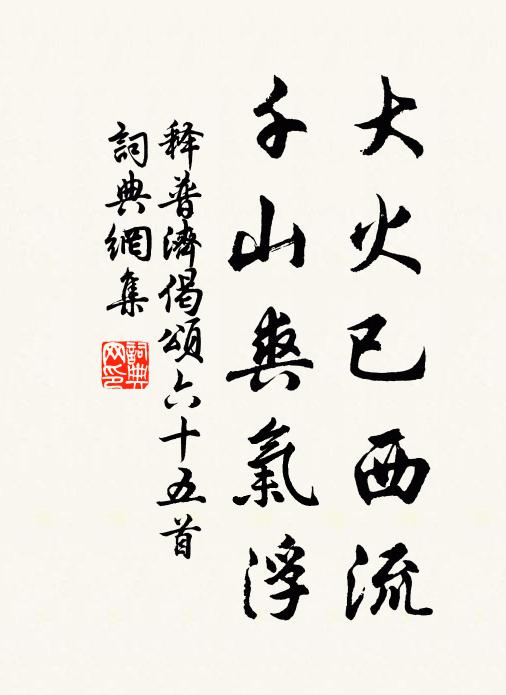 大火已西流
千山爽氣浮
释普濟偈頌六十五首
詞典網集
詞典网印